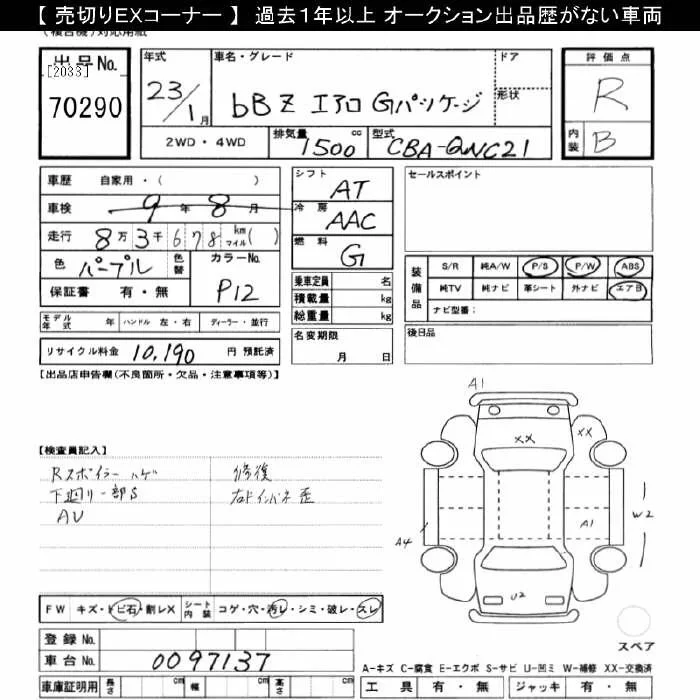 【 売切りEXコーナー 】 過去1年以上 オークション出品歴がない車両
出品No.
[2033]
70290
年式
23/1月
車名・グレード
bB Z エアロ Gパッケージ
ドア
形状
評価点
R
内装
B
2WD・4WD
排気量
1500
cc
型式
CBA-QNC21
車歴 自家用・( )
車検 9年 8月
走行 8万3千678 km マイル( )
色 パープル
色替
カラーNo.
P12
保証書 有・無
シフト
AT
冷房
AAC
燃料
G
乗車定員 名
積載量 kg
総重量 kg
セールスポイント
装備品
S/R 純A/W P/S P/W ABS
純TV 純ナビ 革シート 外ナビ エアB
ナビ型番:
モデル年式 年 ハンドル 左・右 ディーラー・並行
リサイクル料金 10,190 円 預託済
名変期限
月 日
後日品
【出品店申告欄(不良箇所・欠品・注意事項等)】
A1
XX
XX
A1
W2
A4
U2
【検査員記入】
Rスポイラーハゲ 修復
下廻り一部S 右ドインパネ歪
AU
FW キズ・トビ石・割レX
シート内装 コゲ・穴・汚レ・シミ・破レ・スレ
登録No.
車台No. 0097137
車庫証明用 長さ cm 幅 cm 高さ cm
スペア
A-キズ C-腐食 E-エクボ S-サビ U-凹ミ W-補修 XX-交換済
工具 有・無 ジャッキ 有・無